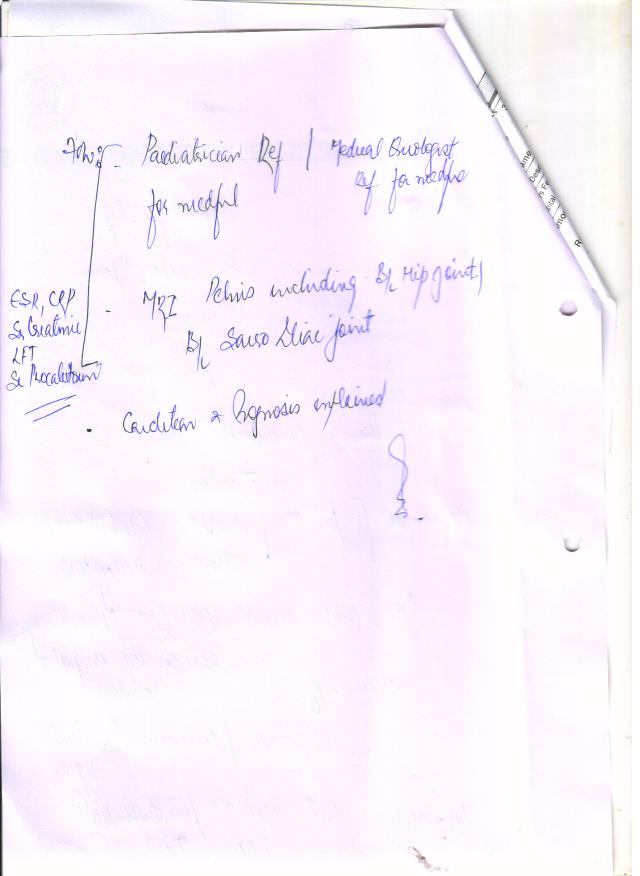 Paediatrician Ref / Medical Oncologist
Ref for needful
for needful
MRI Pelvis including B/L Hip joint/
B/L Sacro Iliac joint
ESR, CRP
Sr Creatinine
LFT
Sr Procalcitonin
Condition & Prognosis explained
R